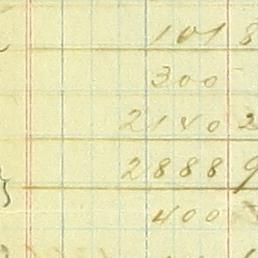 101 8
300
2140 2
2888 9
400